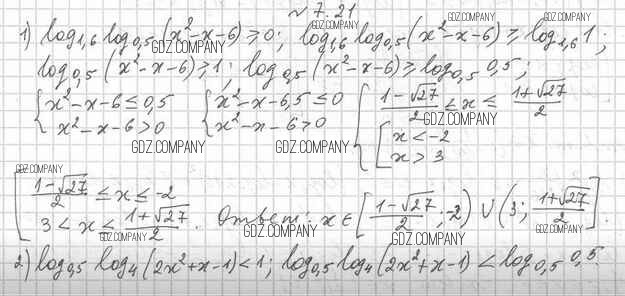 № 7.21
1) log₁,₆ log₀,₅ (x² - x - 6) ≥ 0; log₁,₆ log₀,₅ (x² - x - 6) ≥ log₁,₆ 1;
log₀,₅ (x² - x - 6) ≥ 1; log₀,₅ (x² - x - 6) ≥ log₀,₅ 0,5;
{ x² - x - 6 ≤ 0,5 { x² - x - 6,5 ≤ 0 { (1 - √27)/2 ≤ x ≤ (1 + √27)/2
{ x² - x - 6 > 0 { x² - x - 6 > 0 { [ x < -2
[ x > 3
[ (1 - √27)/2 ≤ x ≤ -2
[ 3 < x ≤ (1 + √27)/2. Ответ: x ∈ [(1 - √27)/2; -2) ∪ (3; (1 + √27)/2].
2) log₀,₅ log₄ (2x² + x - 1) < 1; log₀,₅ log₄ (2x² + x - 1) < log₀,₅ 0,5
GDZ.COMPANY
GDZ.COMPANY
GDZ.COMPANY
GDZ.COMPANY
GDZ.COMPANY
GDZ.COMPANY
GDZ.COMPANY
GDZ.COMPANY
GDZ.COMPANY
GDZ.COMPANY
GDZ.COMPANY
GDZ.COMPANY
GDZ.COMPANY
GDZ.COMPANY